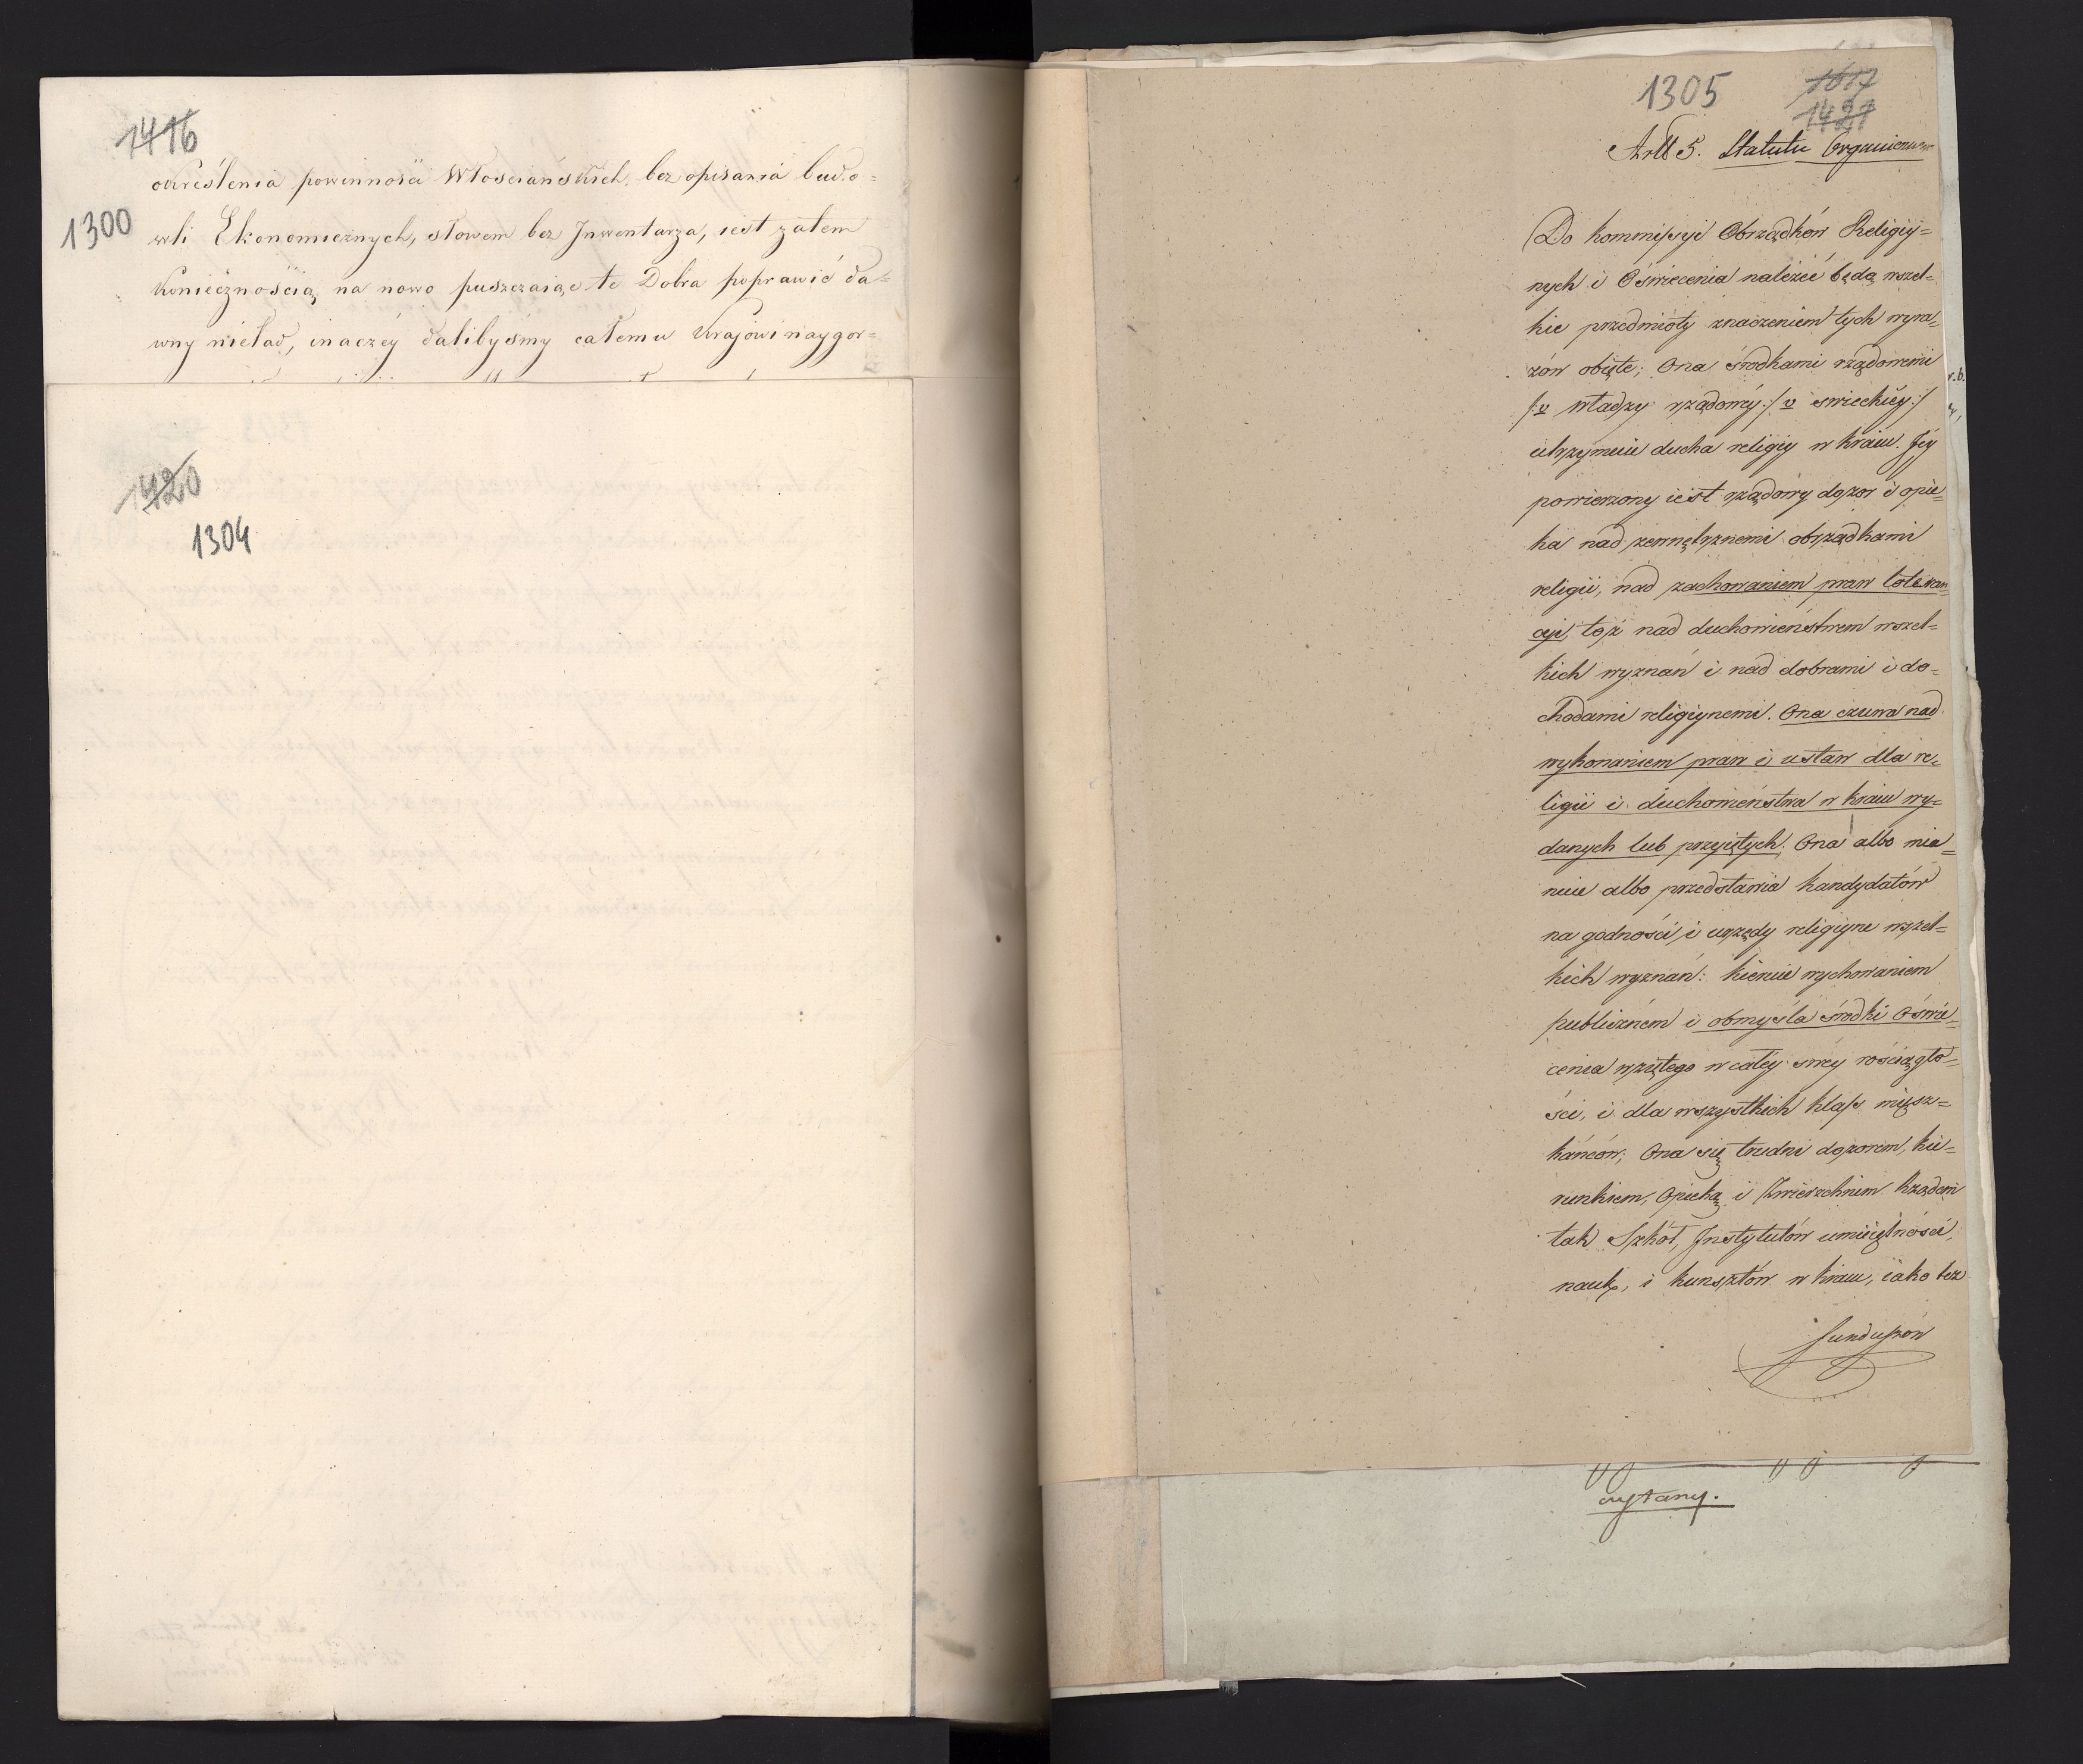 1416
określenia powinności Włościańskich, bez opisania budo=
1300
wli Ekonomicznych, słowem bez Inwentarza, iest zatem
koniecznością na nowo puszczaiąc te Dobra poprawić da=
wny nieład, inaczéy dalibyśmy całemu Kraiowi naygor=
1420
1304
1305
1617
1421
Artt 5. Statutu Organicznego
Do kommissyi Obrządków Religiy=
nych i Oświecenia należeć będą wszel=
kie przedmioty znaczeniem tych wyra=
zów obięte; Ona środkami rządowemi
/:v władzy rządowéy:/ v swieckiéy:/
utrzymuie ducha religiy w kraiu. Jéy
powierzony iest rządowy dozor i opie=
ka nad zewnętrznemi obrządkami
religii, nad zachowaniem praw toleran=
cyi, toż nad duchowieństwem wszel=
kich wyznań i nad dobrami i do=
chodami religiynemi. Ona czuwa nad
wykonaniem praw i ustaw dla re=
ligii i duchowieństwa w kraiu wy=
danych lub przyiętych. Ona albo mia=
nuie albo przedstawia kandydatów
na godności i urzędy religiyne wszel=
kich wyznań: kieruie wychowaniem
publicznem i obmyśla środki Oświe=
cenia wziętego w całéy swéy rosciągło=
ści, i dla wszystkich klass miesz=
kańców; Ona się trudni dozorem, kie=
runkiem, Opieką i Zwierzchnim Rządem
tak Szkół, Instytutów umieiętności,
nauk, i kunsztów w kraiu, iako też
funduszów
czytany.